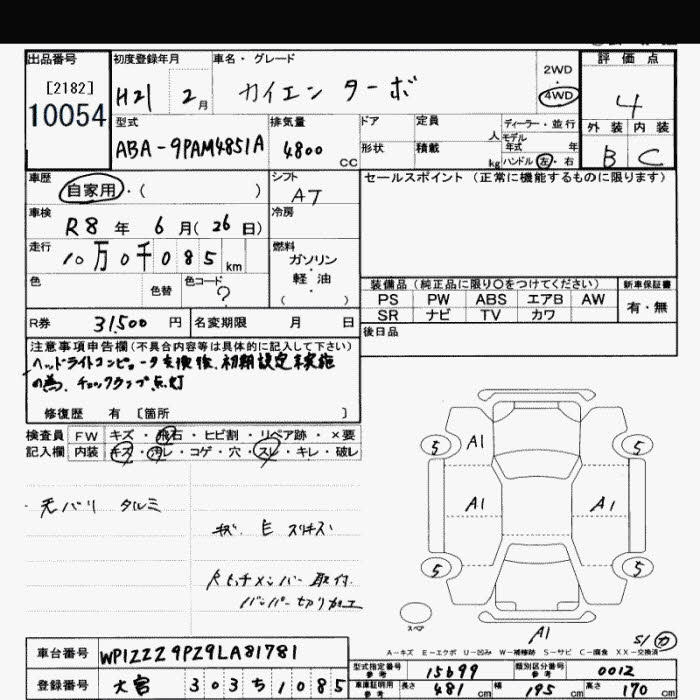 出品番号
[2182]
10054
初度登録年月
H21 2月
車名・グレード
カイエン ターボ
2WD
・
4WD
評価点
4
外装 内装
B C
型式
ABA-9PAM4851A
排気量
4800 cc
ドア
形状
定員
人
積載
kg
ディーラー・並行
モデル
年式 年
ハンドル 左・右
車歴
自家用・( )
シフト
AT
セールスポイント(正常に機能するものに限ります)
車検
R8年 6月(26日)
冷房
走行
10万0千085km
燃料
ガソリン
・
軽油
( )
色
色替
色コード
?
装備品(純正品に限り〇をつけてください)
新車保証書
PS PW ABS エアB AW
SR ナビ TV カワ
有・無
R券 31,500円
名変期限 月 日
後日品
注意事項申告欄(不具合内容等は具体的に記入して下さい)
ヘッドライトコンピュータ交換後、初期設定未実施
の為、チェックランプ点灯
修復歴 有 [箇所 ]
検査員
記入欄
FW キズ・飛石・ヒビ割・リペア跡・×要
内装 キズ・汚レ・コゲ・穴・スレ・キレ・破レ
天バリ タルミ
キズ E スリキズ
バンパー切り加工
5 A1 5
A1 A1
5 5
スペア
A1
S/カ
A-キズ E-エクボ U-凹み W-補修跡 S-サビ C-腐食 XX-交換済
車台番号 WP1ZZZ9PZ9LA81781
登録番号 大宮 303 ち 1085
型式指定番号
参考
15699
類別区分番号
参考
0012
車庫証明用
参考
長さ 481cm 幅 195cm 高さ 170cm